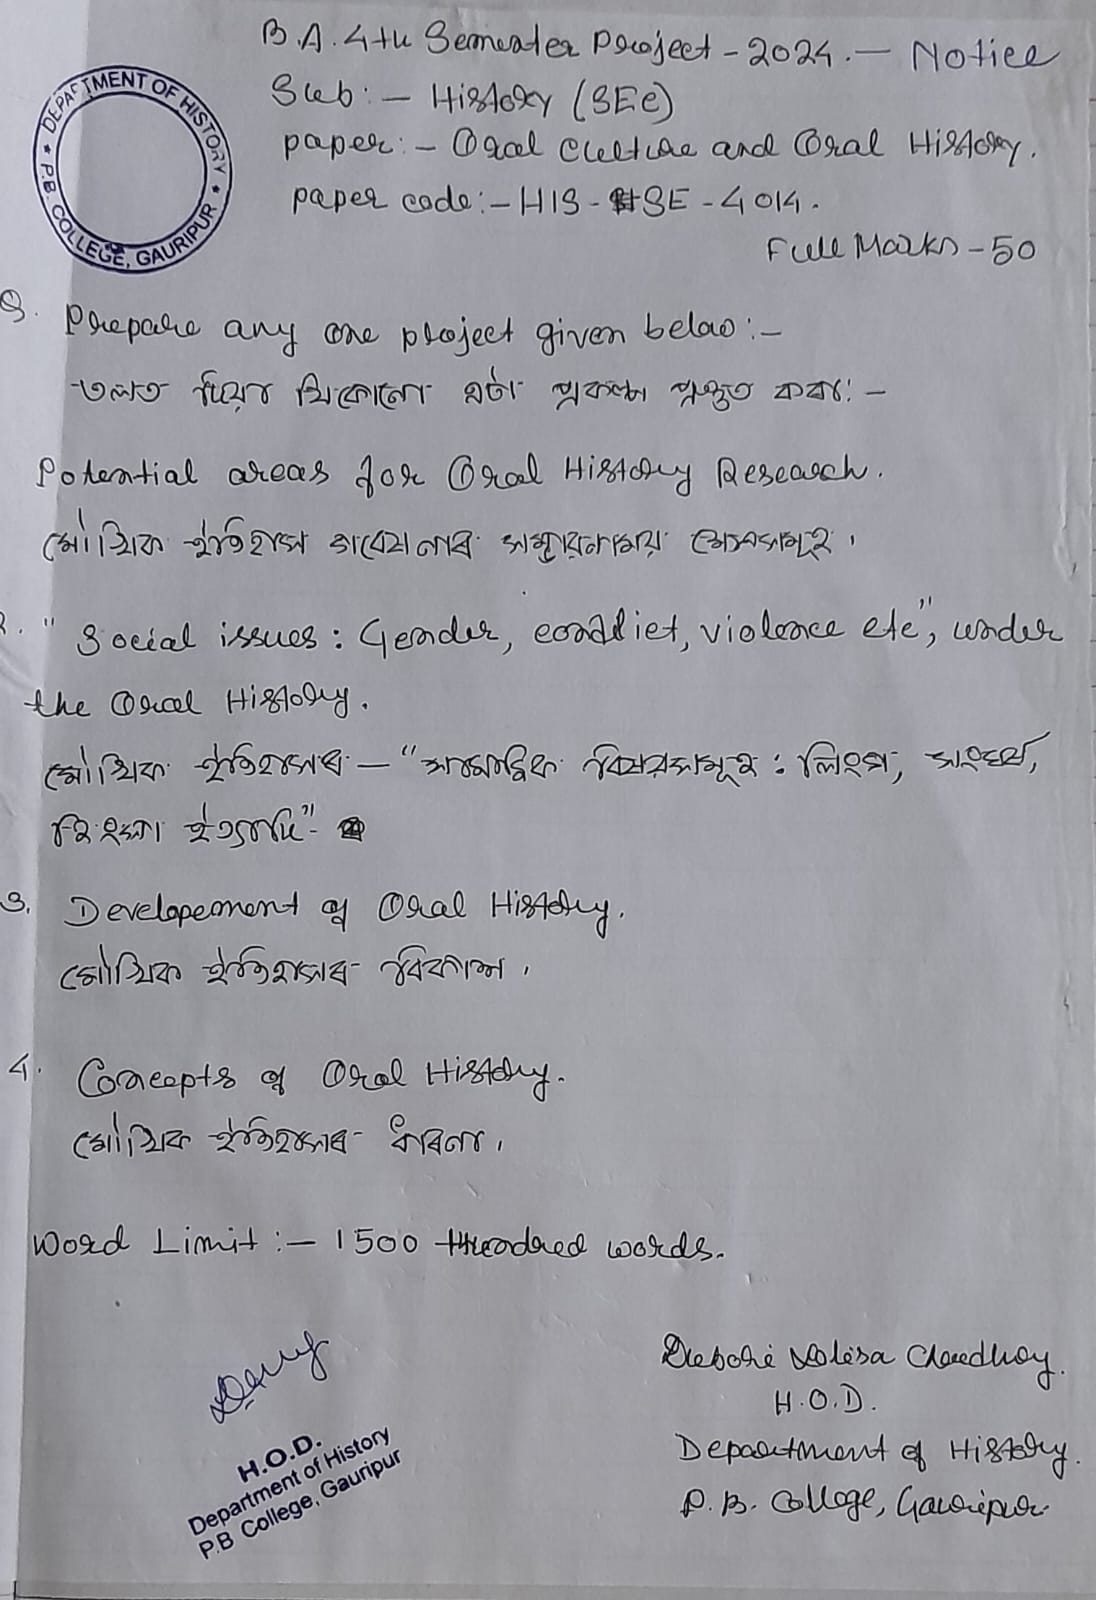 B.A. 4th Semester Project - 2024. — Notice
DEPARTMENT OF HISTORY
★ P.B. COLLEGE, GAURIPUR ★
Sub: — History (SEC)
paper: — Oral Culture and Oral History.
paper code: — HIS - SE - 4014.
Full Marks - 50
Q. Prepare any one project given below: —
তলত দিয়া যিকোনো এটা প্ৰকল্প প্ৰস্তুত কৰা: —
Potential areas for Oral History Research.
মৌখিক ইতিহাস গৱেষণাৰ সম্ভাৱনাময় ক্ষেত্ৰসমূহ।
2. "Social issues: Gender, conflict, violence etc", under
the Oral History.
মৌখিক ইতিহাসৰ — "সামাজিক বিষয়সমূহ: লিংগ, সংঘৰ্ষ,
হিংসা ইত্যাদি"
3. Developement of Oral History.
মৌখিক ইতিহাসৰ বিকাশ।
4. Concepts of Oral History.
মৌখিক ইতিহাসৰ ধাৰণা।
Word Limit: — 1500 Hundred words.
H.O.D.
Department of History
P.B College, Gauripur
Choudhury.
H.O.D.
Department of History.
P.B. College, Gauripur.